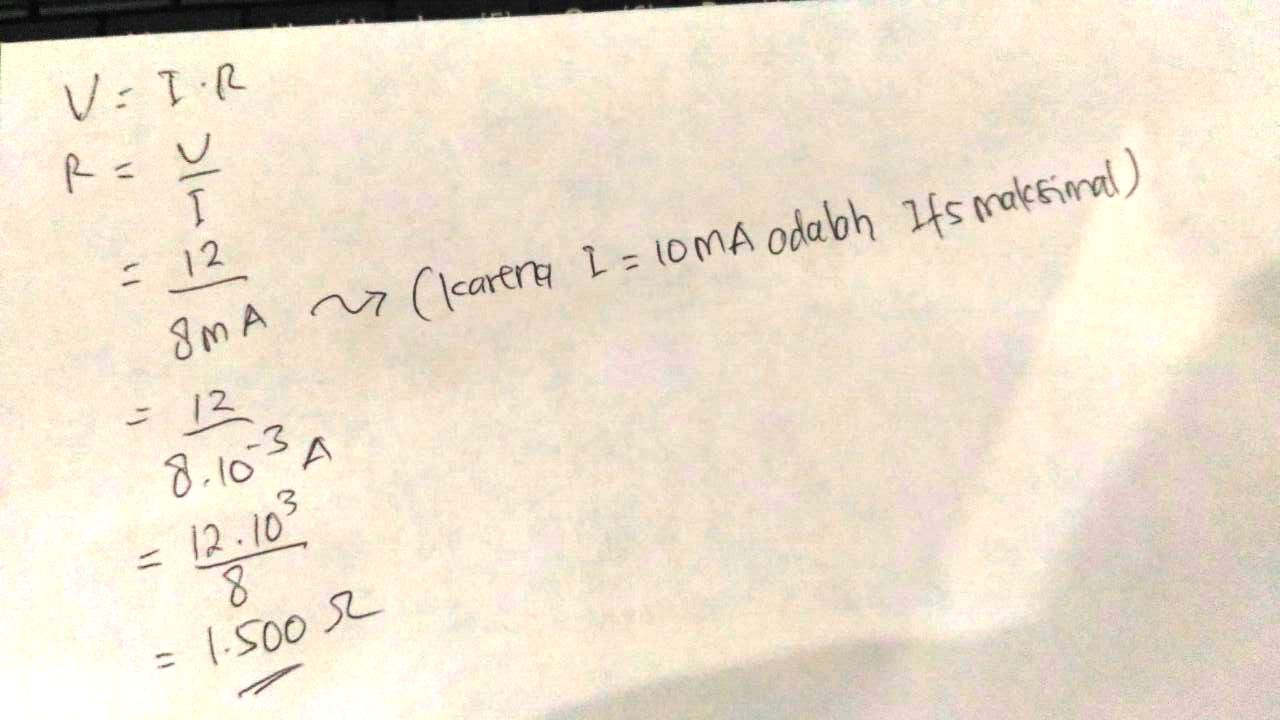 V = I . R
R = V / I
= 12 / 8mA ⤳ (karena I = 10 mA adalah Ifs maksimal)
= 12 / 8.10⁻³ A
= 12.10³ / 8
= 1.500 Ω